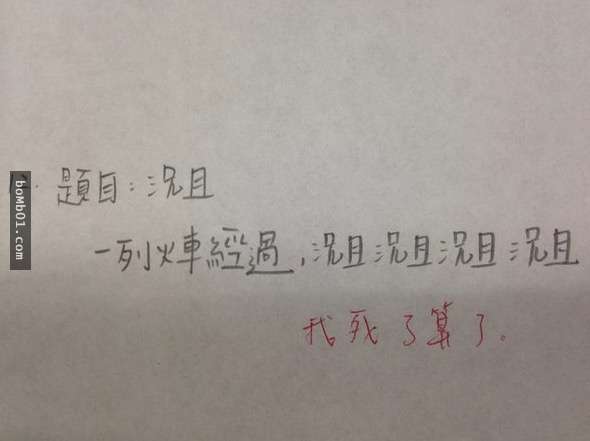 題目：況且
一列火車經過，況且況且況且況且
我死了算了。
boMb01.com